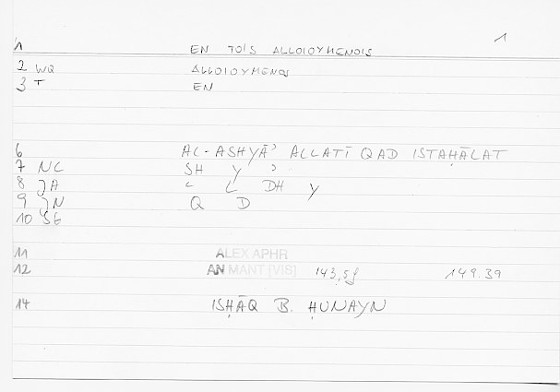 1 EN TOIS ALLOIOYMENOIS 1
2 WQ ALLOIOYMENOS
3 T EN
6 AL-ASHYĀʾ ALLATĪ QAD ISTAḤĀLAT
7 NC SH Y ʾ
8 JA L L DH Y
9 JN Q D
10 SG
11 ALEX APHR
12 AN MANT [VIS] 143,5f 149.39
14 ISḤĀQ B. ḤUNAYN